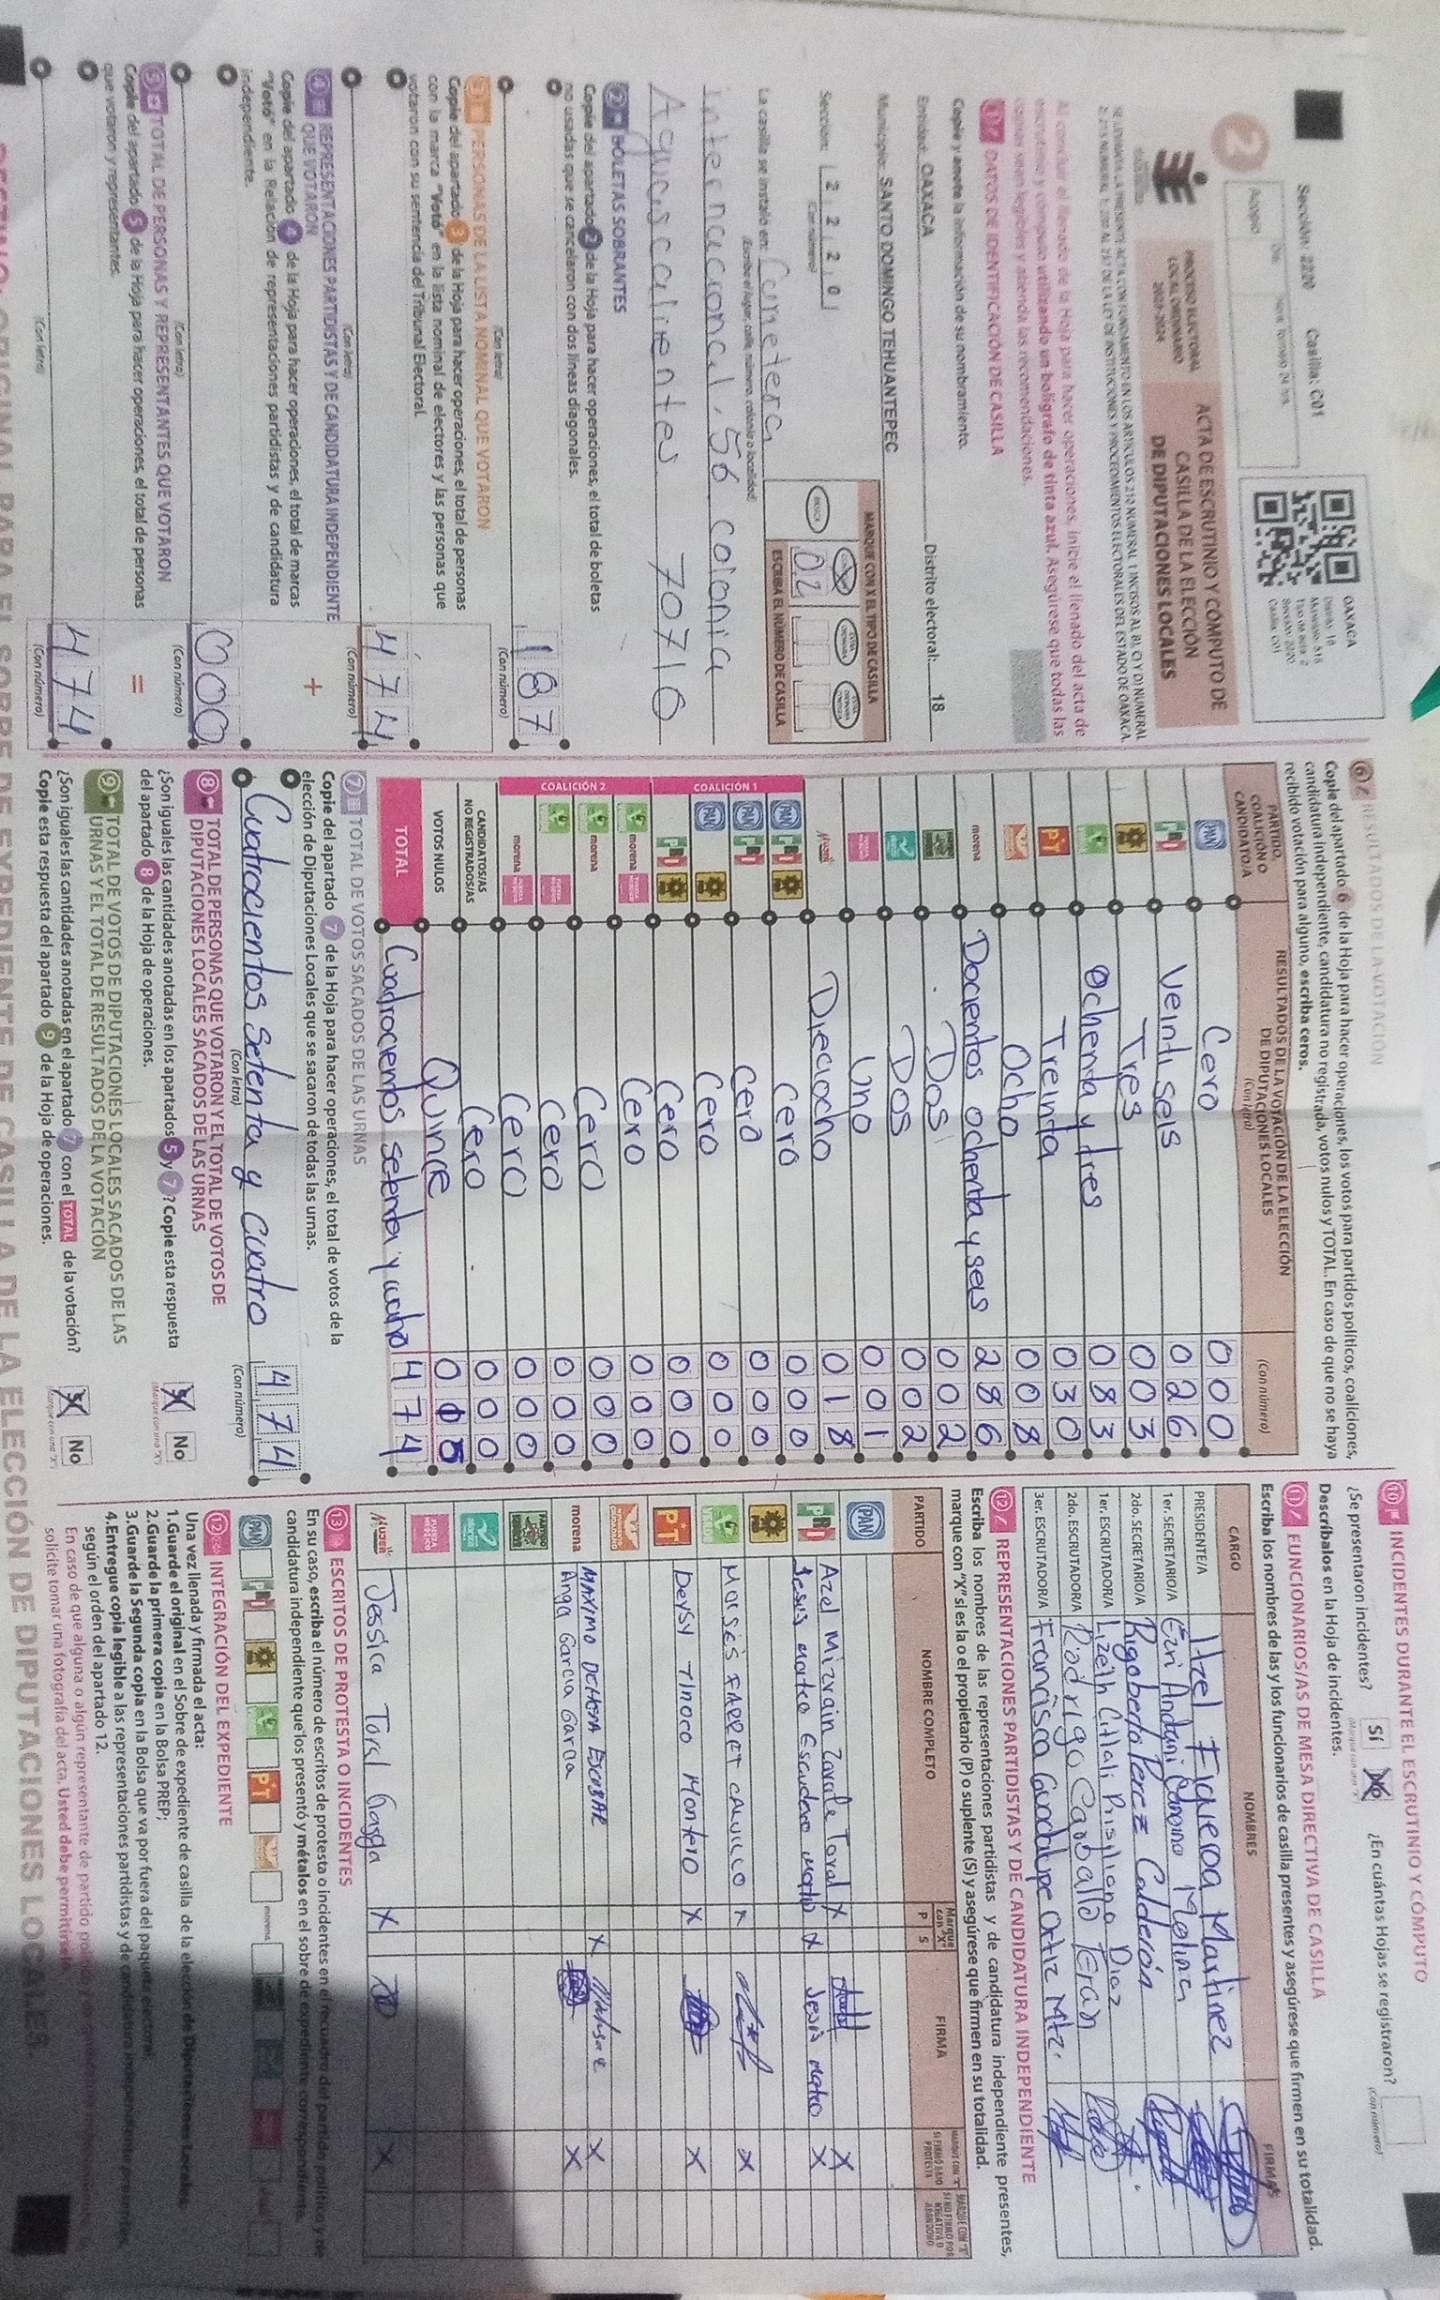 Sección: 2220 Casilla: C01
OAXACA
Distrito: 18
Sección: 2220
Casilla: C01
2
PROCESO ELECTORAL
LOCAL ORDINARIO
2023-2024
ACTA DE ESCRUTINIO Y CÓMPUTO DE
CASILLA DE LA ELECCIÓN
DE DIPUTACIONES LOCALES
Al concluir el llenado de la Hoja para hacer operaciones, inicie el llenado del acta de
escrutinio y cómputo utilizando un bolígrafo de tinta azul. Asegúrese que todas las
copias sean legibles y atienda las recomendaciones.
1 DATOS DE IDENTIFICACIÓN DE CASILLA
Copie y anote la información de su nombramiento.
Entidad: OAXACA Distrito electoral: 18
Municipio: SANTO DOMINGO TEHUANTEPEC
Sección: 2220
(Con número)
MARQUE CON X EL TIPO DE CASILLA
BÁSICA
X
ESCRIBA EL NÚMERO DE CASILLA
La casilla se instaló en: Carretera
(Escriba el lugar, calle, número, colonia o localidad)
internacional. 56 colonia
Aguascalientes 70710
2 BOLETAS SOBRANTES
Copie del apartado 2 de la Hoja para hacer operaciones, el total de boletas
no usadas que se cancelaron con dos líneas diagonales.
187
(Con letra) (Con número)
3 PERSONAS DE LA LISTA NOMINAL QUE VOTARON
Copie del apartado 3 de la Hoja para hacer operaciones, el total de personas
con la marca "Votó" en la lista nominal de electores y las personas que
votaron con su sentencia del Tribunal Electoral.
474
(Con letra) (Con número)
4 REPRESENTACIONES PARTIDISTAS Y DE CANDIDATURA INDEPENDIENTE
QUE VOTARON
+
Copie del apartado 4 de la Hoja para hacer operaciones, el total de marcas
"Votó" en la Relación de representaciones partidistas y de candidatura
independiente.
000
(Con letra) (Con número)
5 TOTAL DE PERSONAS Y REPRESENTANTES QUE VOTARON
=
Copie del apartado 5 de la Hoja para hacer operaciones, el total de personas
que votaron y representantes.
474
(Con letra) (Con número)
6 RESULTADOS DE LA VOTACIÓN
Copie del apartado 6 de la Hoja para hacer operaciones, los votos para partidos políticos, coaliciones,
candidatura independiente, candidatura no registrada, votos nulos y TOTAL. En caso de que no se haya
recibido votación para alguno, escriba ceros.
PARTIDO,
COALICIÓN O
CANDIDATO/A
RESULTADOS DE LA VOTACIÓN DE LA ELECCIÓN
DE DIPUTACIONES LOCALES
(Con letra)
(Con número)
PAN Cero 000
PRI Veintiseis 026
PRD Tres 003
VERDE Ochenta y tres 083
PT Treinta 030
Ocho 008
morena Docientos ochenta y seis 286
Dos 002
Dos 002
Uno 001
Mujer Dieciocho 018
COALICIÓN 1
PAN PRI PRD Cero 000
PAN PRI Cero 000
PAN PRD Cero 000
PRI PRD Cero 000
COALICIÓN 2
VERDE morena Cero 000
VERDE morena Cero 000
VERDE Cero 000
morena Cero 000
CANDIDATOS/AS
NO REGISTRADOS/AS Cero 000
VOTOS NULOS Quince
TOTAL Cuatrocientos setenta y cuatro 474
7 TOTAL DE VOTOS SACADOS DE LAS URNAS
Copie del apartado 7 de la Hoja para hacer operaciones, el total de votos de la
elección de Diputaciones Locales que se sacaron de todas las urnas.
Cuatrocientos setenta y cuatro 474
(Con letra) (Con número)
8 TOTAL DE PERSONAS QUE VOTARON Y EL TOTAL DE VOTOS DE
DIPUTACIONES LOCALES SACADOS DE LAS URNAS
¿Son iguales las cantidades anotadas en los apartados 5 y 7? Copie esta respuesta
del apartado 8 de la Hoja de operaciones.
Sí No
(Marque con una "X")
9 TOTAL DE VOTOS DE DIPUTACIONES LOCALES SACADOS DE LAS
URNAS Y EL TOTAL DE RESULTADOS DE LA VOTACIÓN
¿Son iguales las cantidades anotadas en el apartado 7 con el TOTAL de la votación?
Copie esta respuesta del apartado 9 de la Hoja de operaciones.
Sí No
(Marque con una "X")
10 INCIDENTES DURANTE EL ESCRUTINIO Y CÓMPUTO
¿Se presentaron incidentes? Sí No ¿En cuántas Hojas se registraron?
(Marque con una "X") (Con número)
Descríbalos en la Hoja de incidentes.
11 FUNCIONARIOS/AS DE MESA DIRECTIVA DE CASILLA
Escriba los nombres de las y los funcionarios de casilla presentes y asegúrese que firmen en su totalidad.
CARGO NOMBRES FIRMAS
PRESIDENTE/A Itzel Figueroa Martinez
1er. SECRETARIO/A Molina
2do. SECRETARIO/A Rigoberto Perez Calderón
1er. ESCRUTADOR/A Lizeth Citlali Prisiliano Diaz
2do. ESCRUTADOR/A Rodrigo Caraballo Teran
3er. ESCRUTADOR/A Francisca Guadalupe Ortiz Mtz.
12 REPRESENTACIONES PARTIDISTAS Y DE CANDIDATURA INDEPENDIENTE
Escriba los nombres de las representaciones partidistas y de candidatura independiente presentes,
marque con "X" si es la o el propietario (P) o suplente (S) y asegúrese que firmen en su totalidad.
PARTIDO NOMBRE COMPLETO Marque con "X" P S FIRMA
PAN
PRI Azel Mizrain Zarate Toral X X
Jesus mateo Escudero X Jesus mateo X
PRD
VERDE Moises X X
PT Deysy Tinoco Montero X X
MAXIMO X X
morena Garcia Garcia X
Mujer Jessica Toral X X
13 ESCRITOS DE PROTESTA O INCIDENTES
En su caso, escriba el número de escritos de protesta o incidentes en el recuadro del partido político y de
candidatura independiente que los presentó y métalos en el sobre de expediente correspondiente.
PAN PRI PRD VERDE PT morena
12 INTEGRACIÓN DEL EXPEDIENTE
Una vez llenada y firmada el acta:
1.Guarde el original en el Sobre de expediente de casilla de la elección de Diputaciones Locales;
2.Guarde la primera copia en la Bolsa PREP;
3.Guarde la Segunda copia en la Bolsa que va por fuera del paquete electoral;
4.Entregue copia legible a las representaciones partidistas y de candidatura independiente presentes,
según el orden del apartado 12.
En caso de que alguna o algún representante de partido
solicite tomar una fotografía del acta, Usted debe permitírselo
DESTINO: ORIGINAL PARA EL SOBRE DE EXPEDIENTE DE CASILLA DE LA ELECCIÓN DE DIPUTACIONES LOCALES